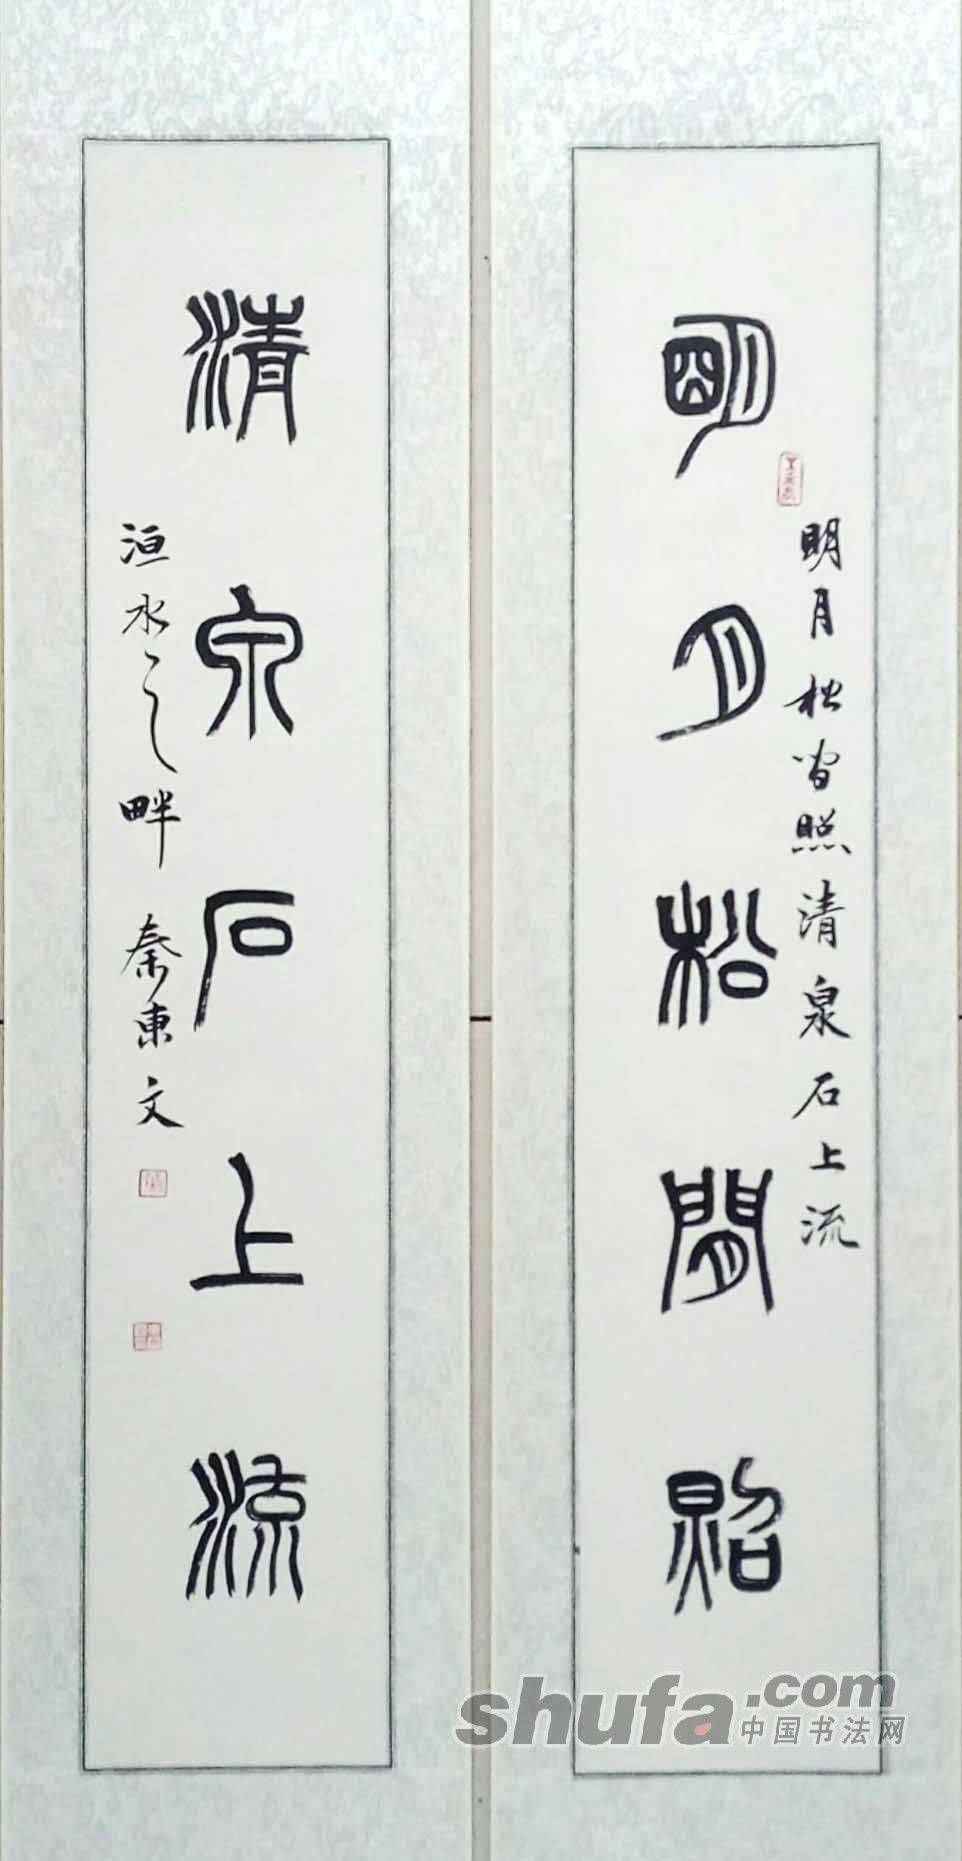 明月松間照
明月松間照清泉石上流
清泉石上流
洹水之畔 秦東文
shufa.com
中国书法网